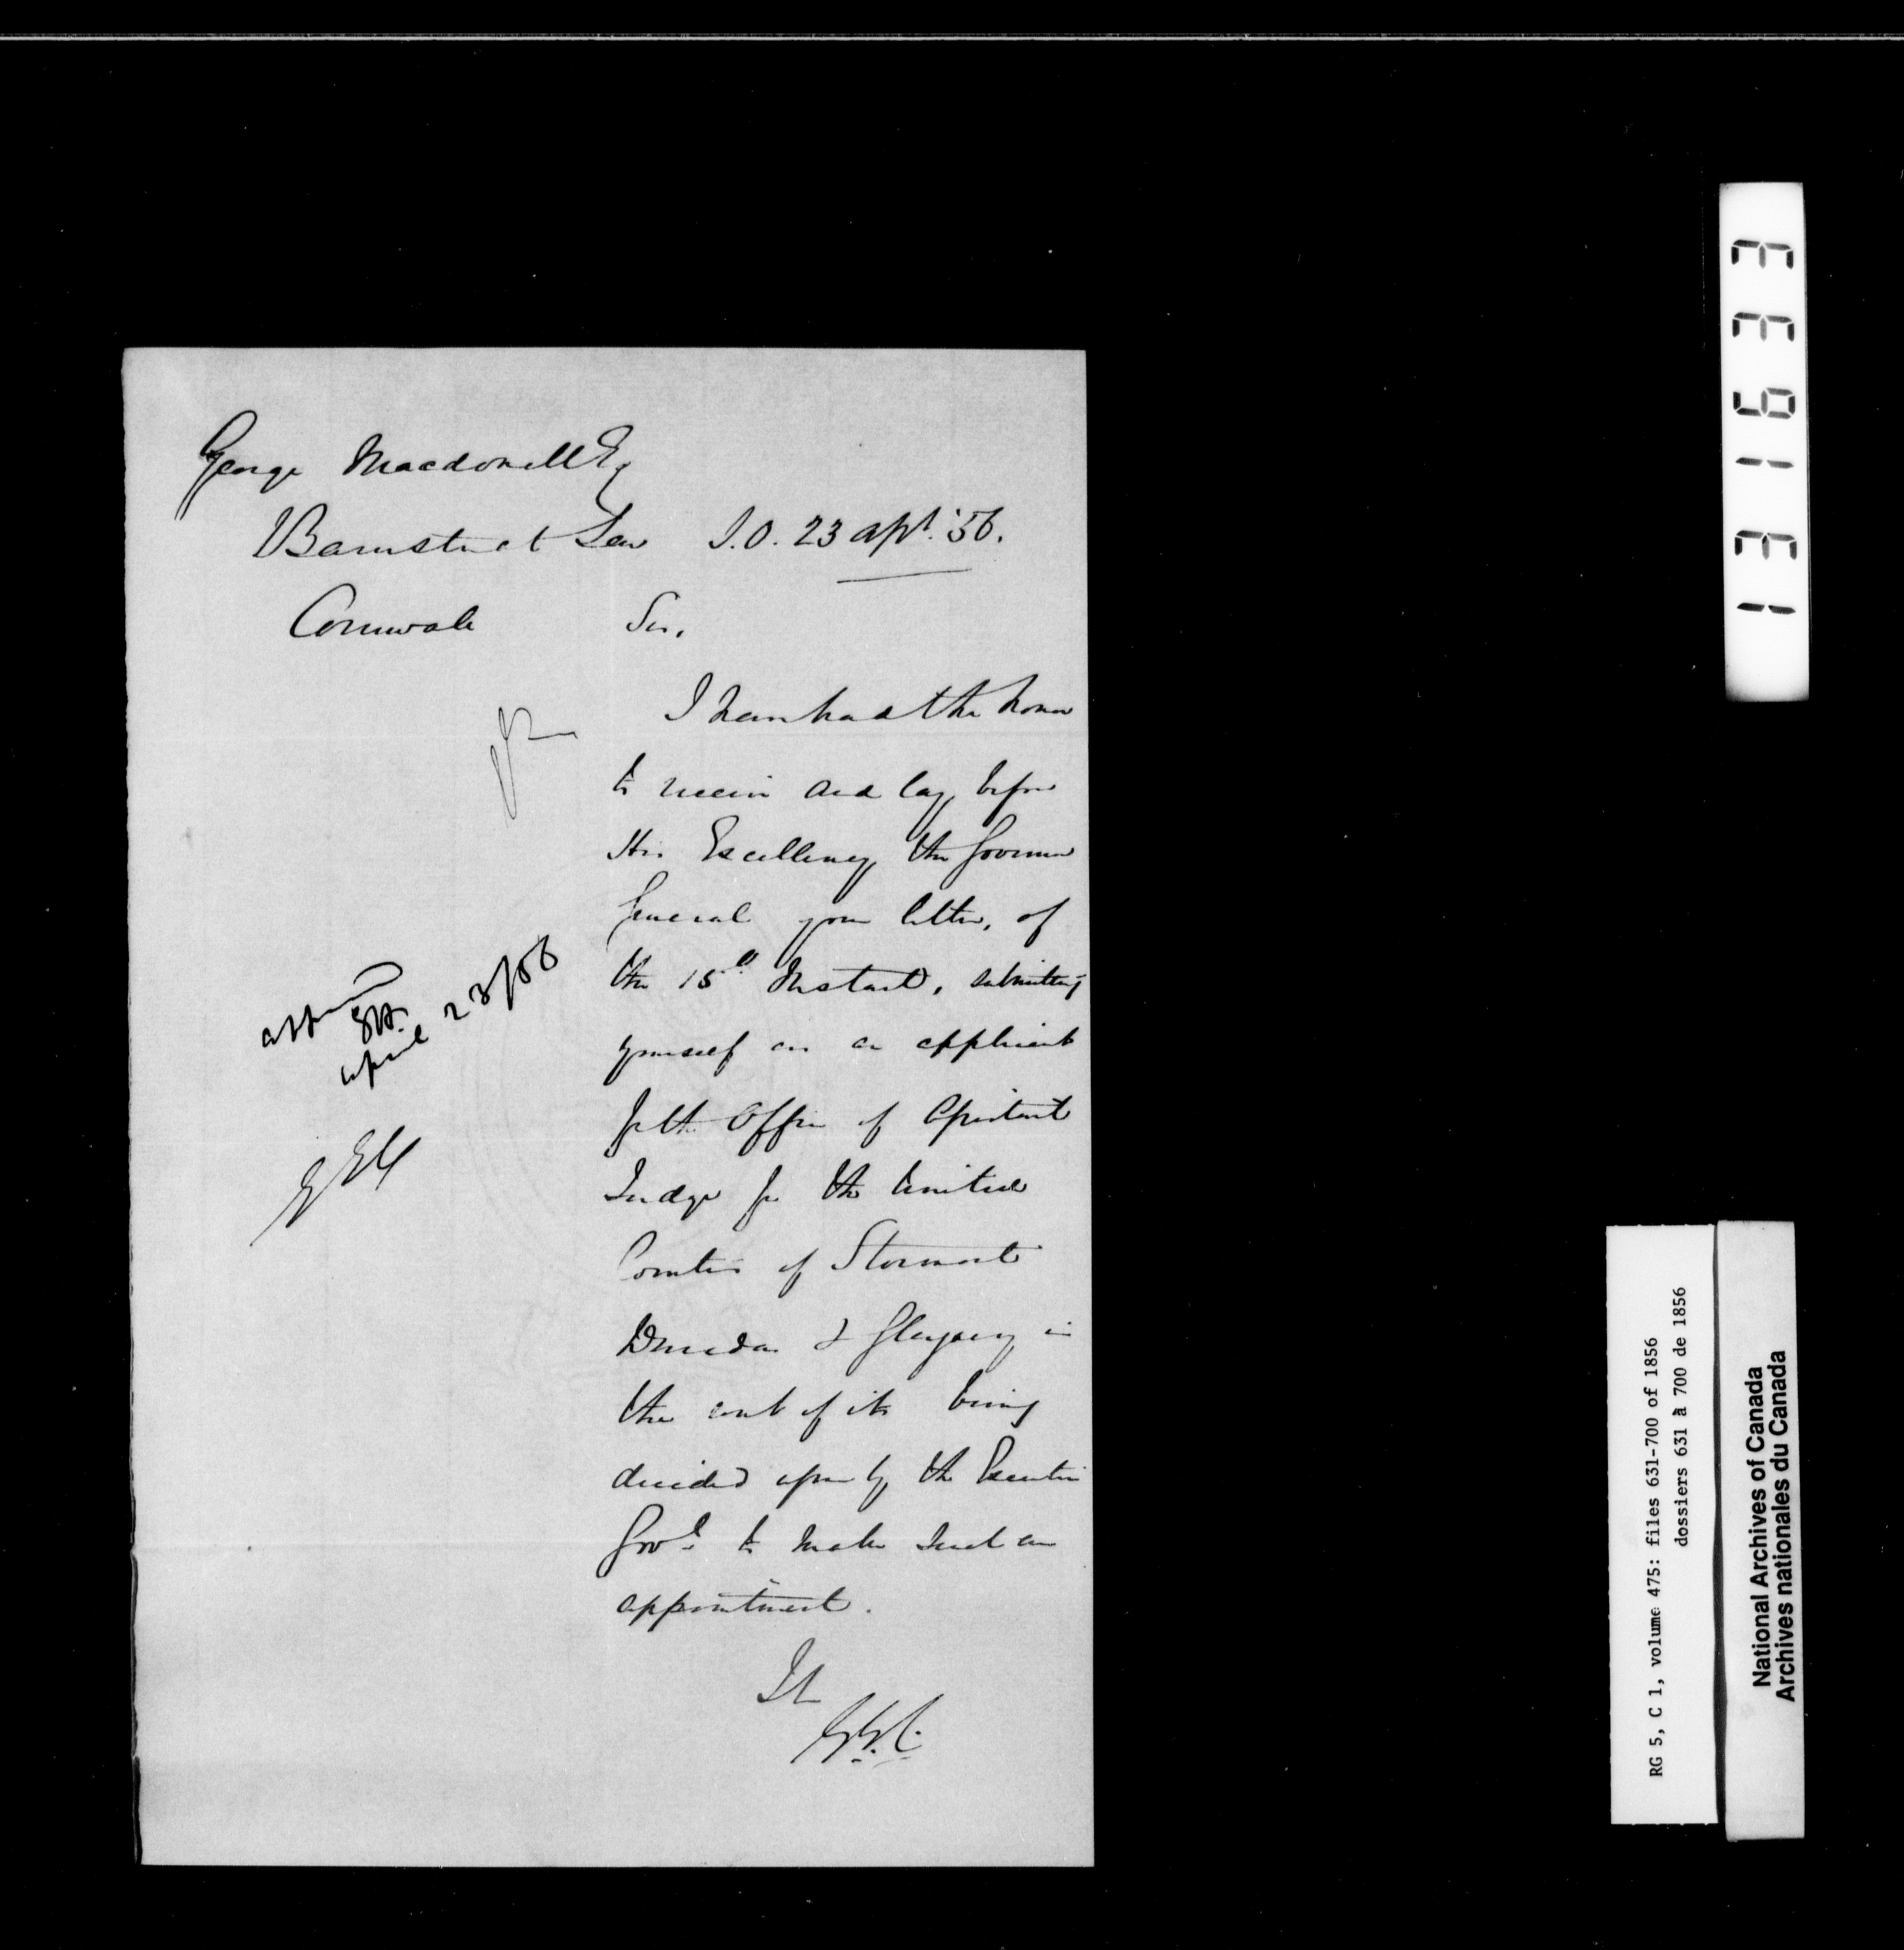 George Macdonell Esq
Barrister at Law S.O. 23 Apl. '56.
Cornwall Sir,
I have had the honor
to receive and lay before
His Excellency the Governor
General your letter, of
the 15th Instant, submitting
yourself as an applicant
for the Office of Assistant
Judge for the United
Counties of Stormont
Dundas & Glengary in
the event of its being
decided upon by the Executive
Govt. to make such an
appointment.
G.E.C.
April 23/56
GEC
131633
RG 5, C 1, volume 475: files 631-700 of 1856
dossiers 631 à 700 de 1856
National Archives of Canada
Archives nationales du Canada